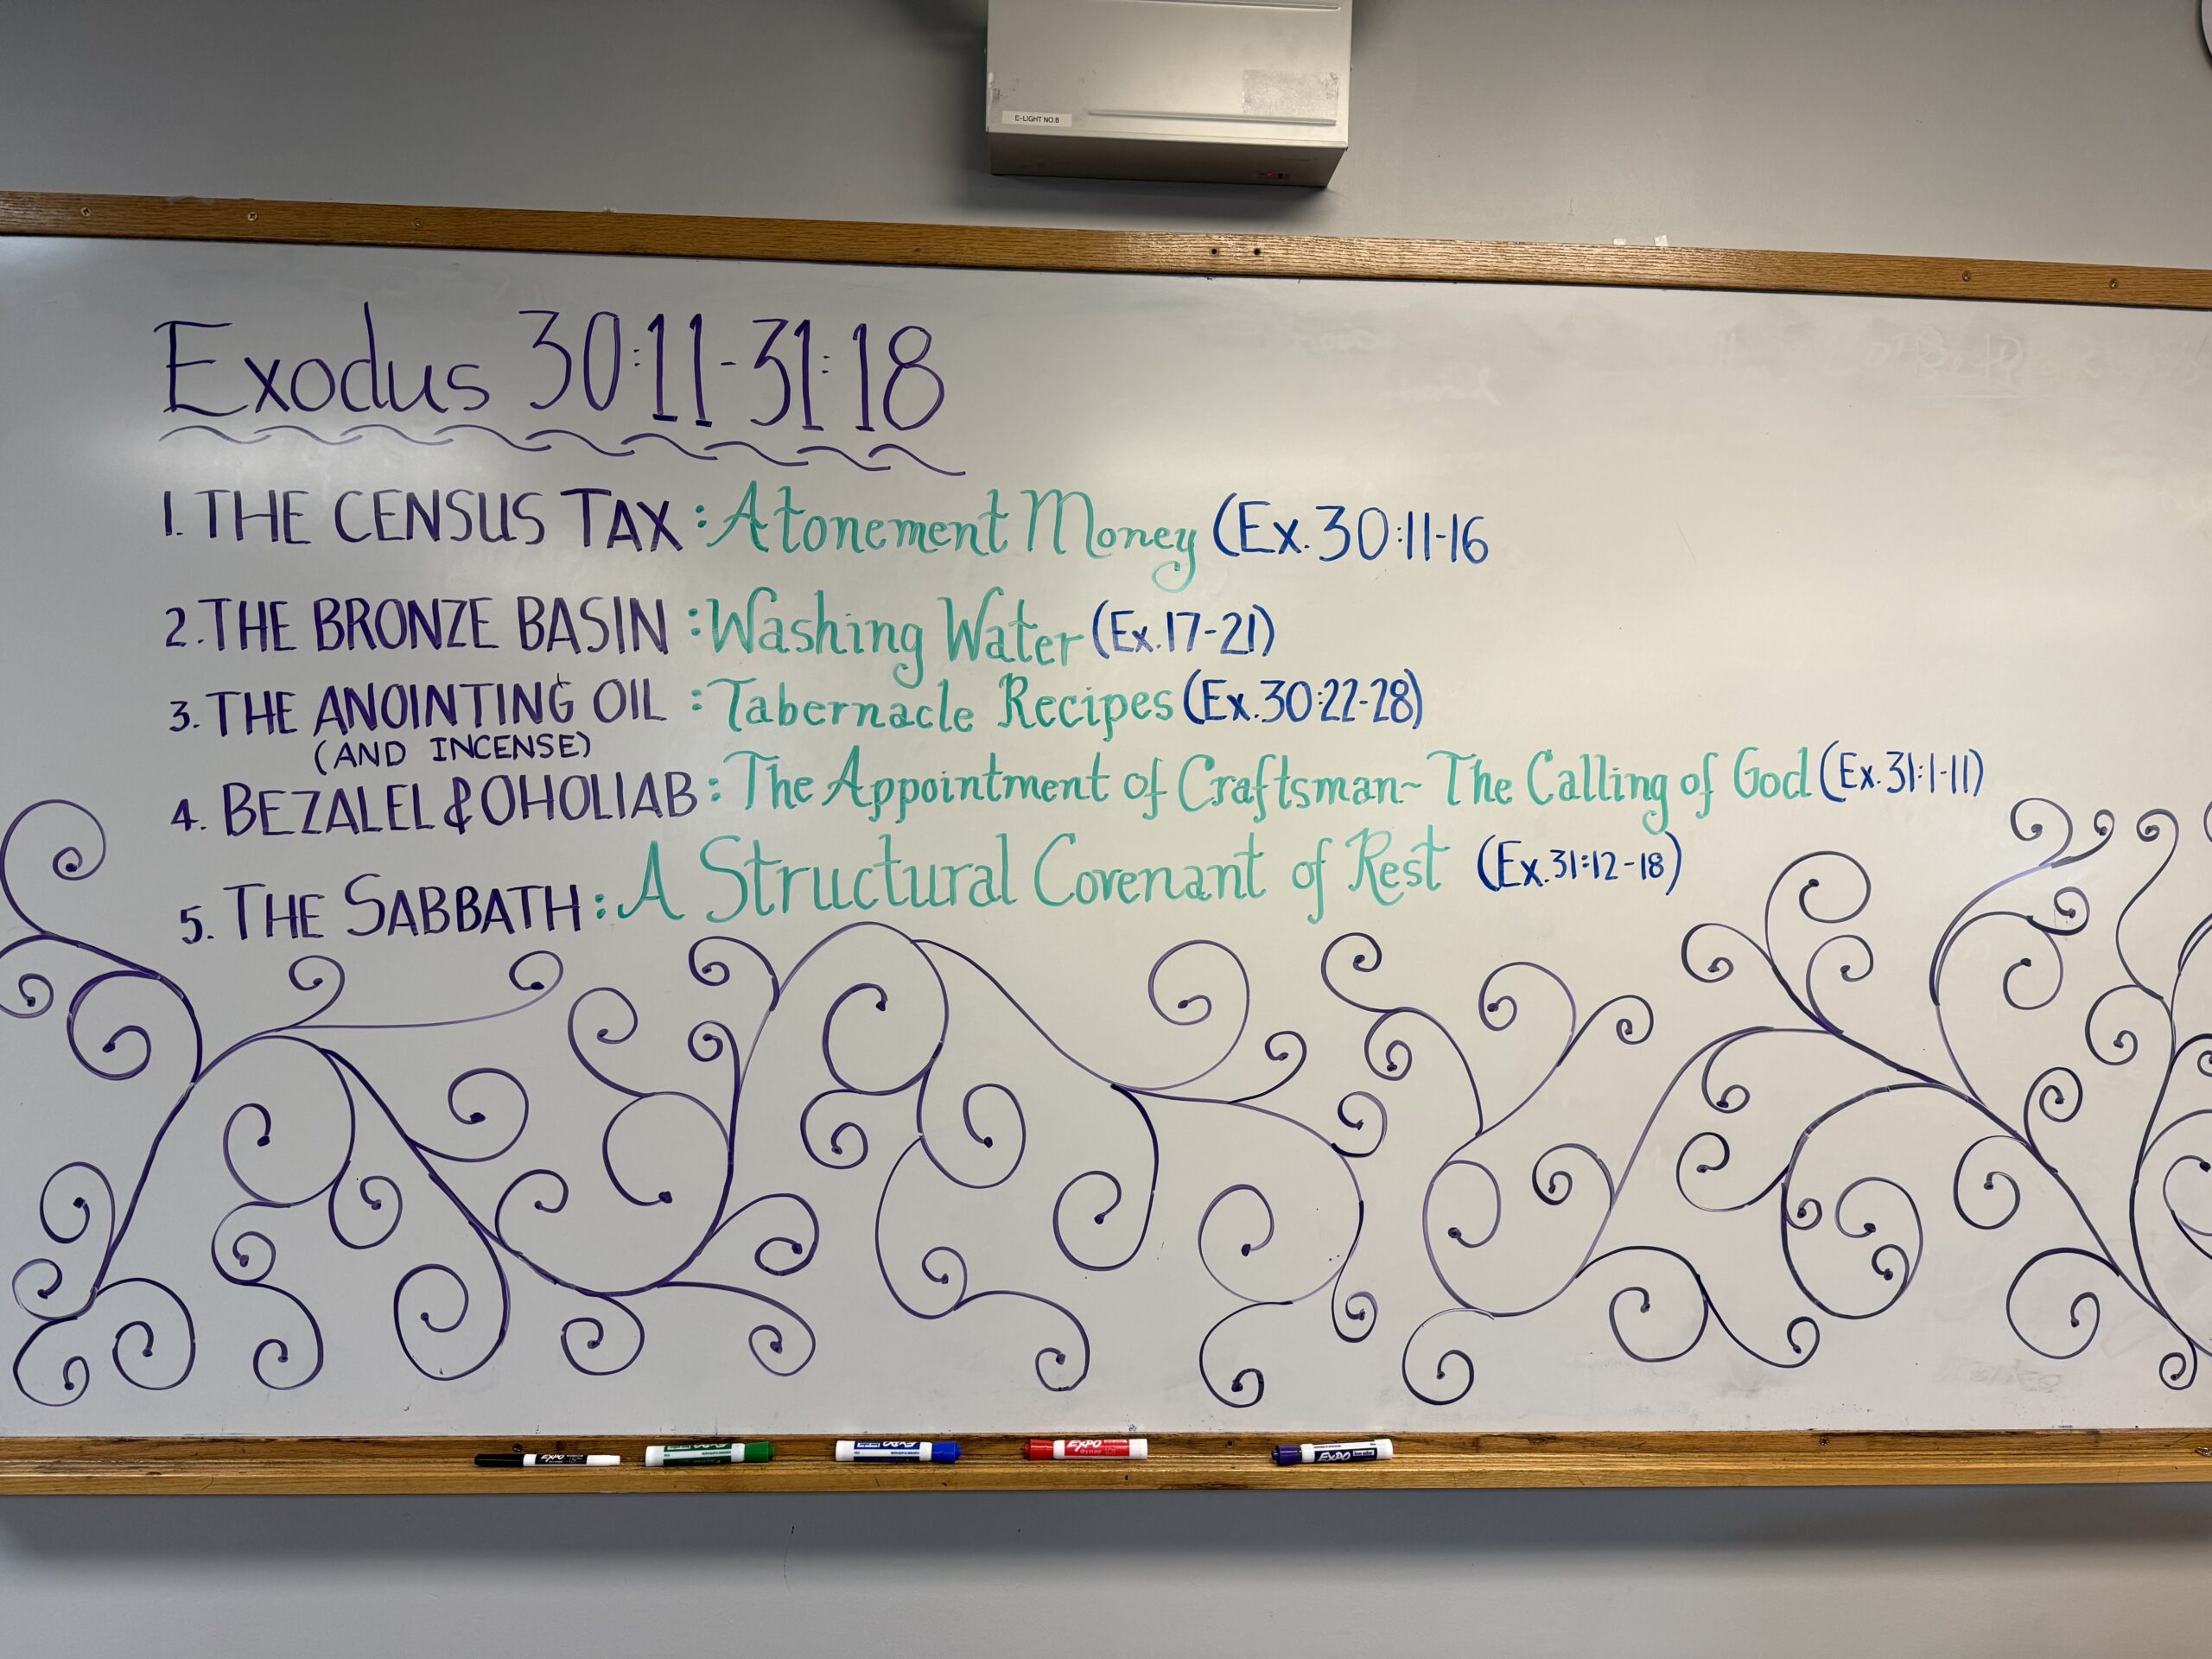 E-LIGHT NO.8
Exodus 30:11-31:18
1. THE CENSUS TAX : Atonement Money (Ex. 30:11-16
2. THE BRONZE BASIN : Washing Water (Ex. 17-21)
3. THE ANOINTING OIL : Tabernacle Recipes (Ex. 30:22-28)
(AND INCENSE)
4. BEZALEL & OHOLIAB : The Appointment of Craftsman~ The Calling of God (Ex. 31:1-11)
5. THE SABBATH : A Structural Covenant of Rest (Ex. 31:12-18)
EXPO
EXPO
EXPO